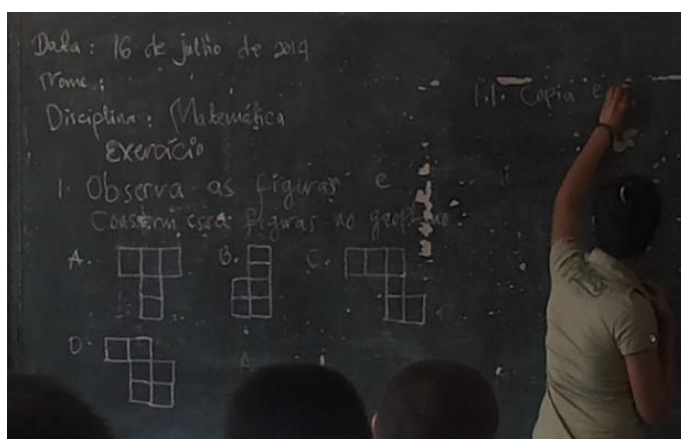 Data: 16 de julho de 2014
Nome:
Disciplina: Matemática
Exercício
1. Observa as figuras e
Construi essa figuras no geoplano.
A.
B.
C.
D.
1.1. Copia e